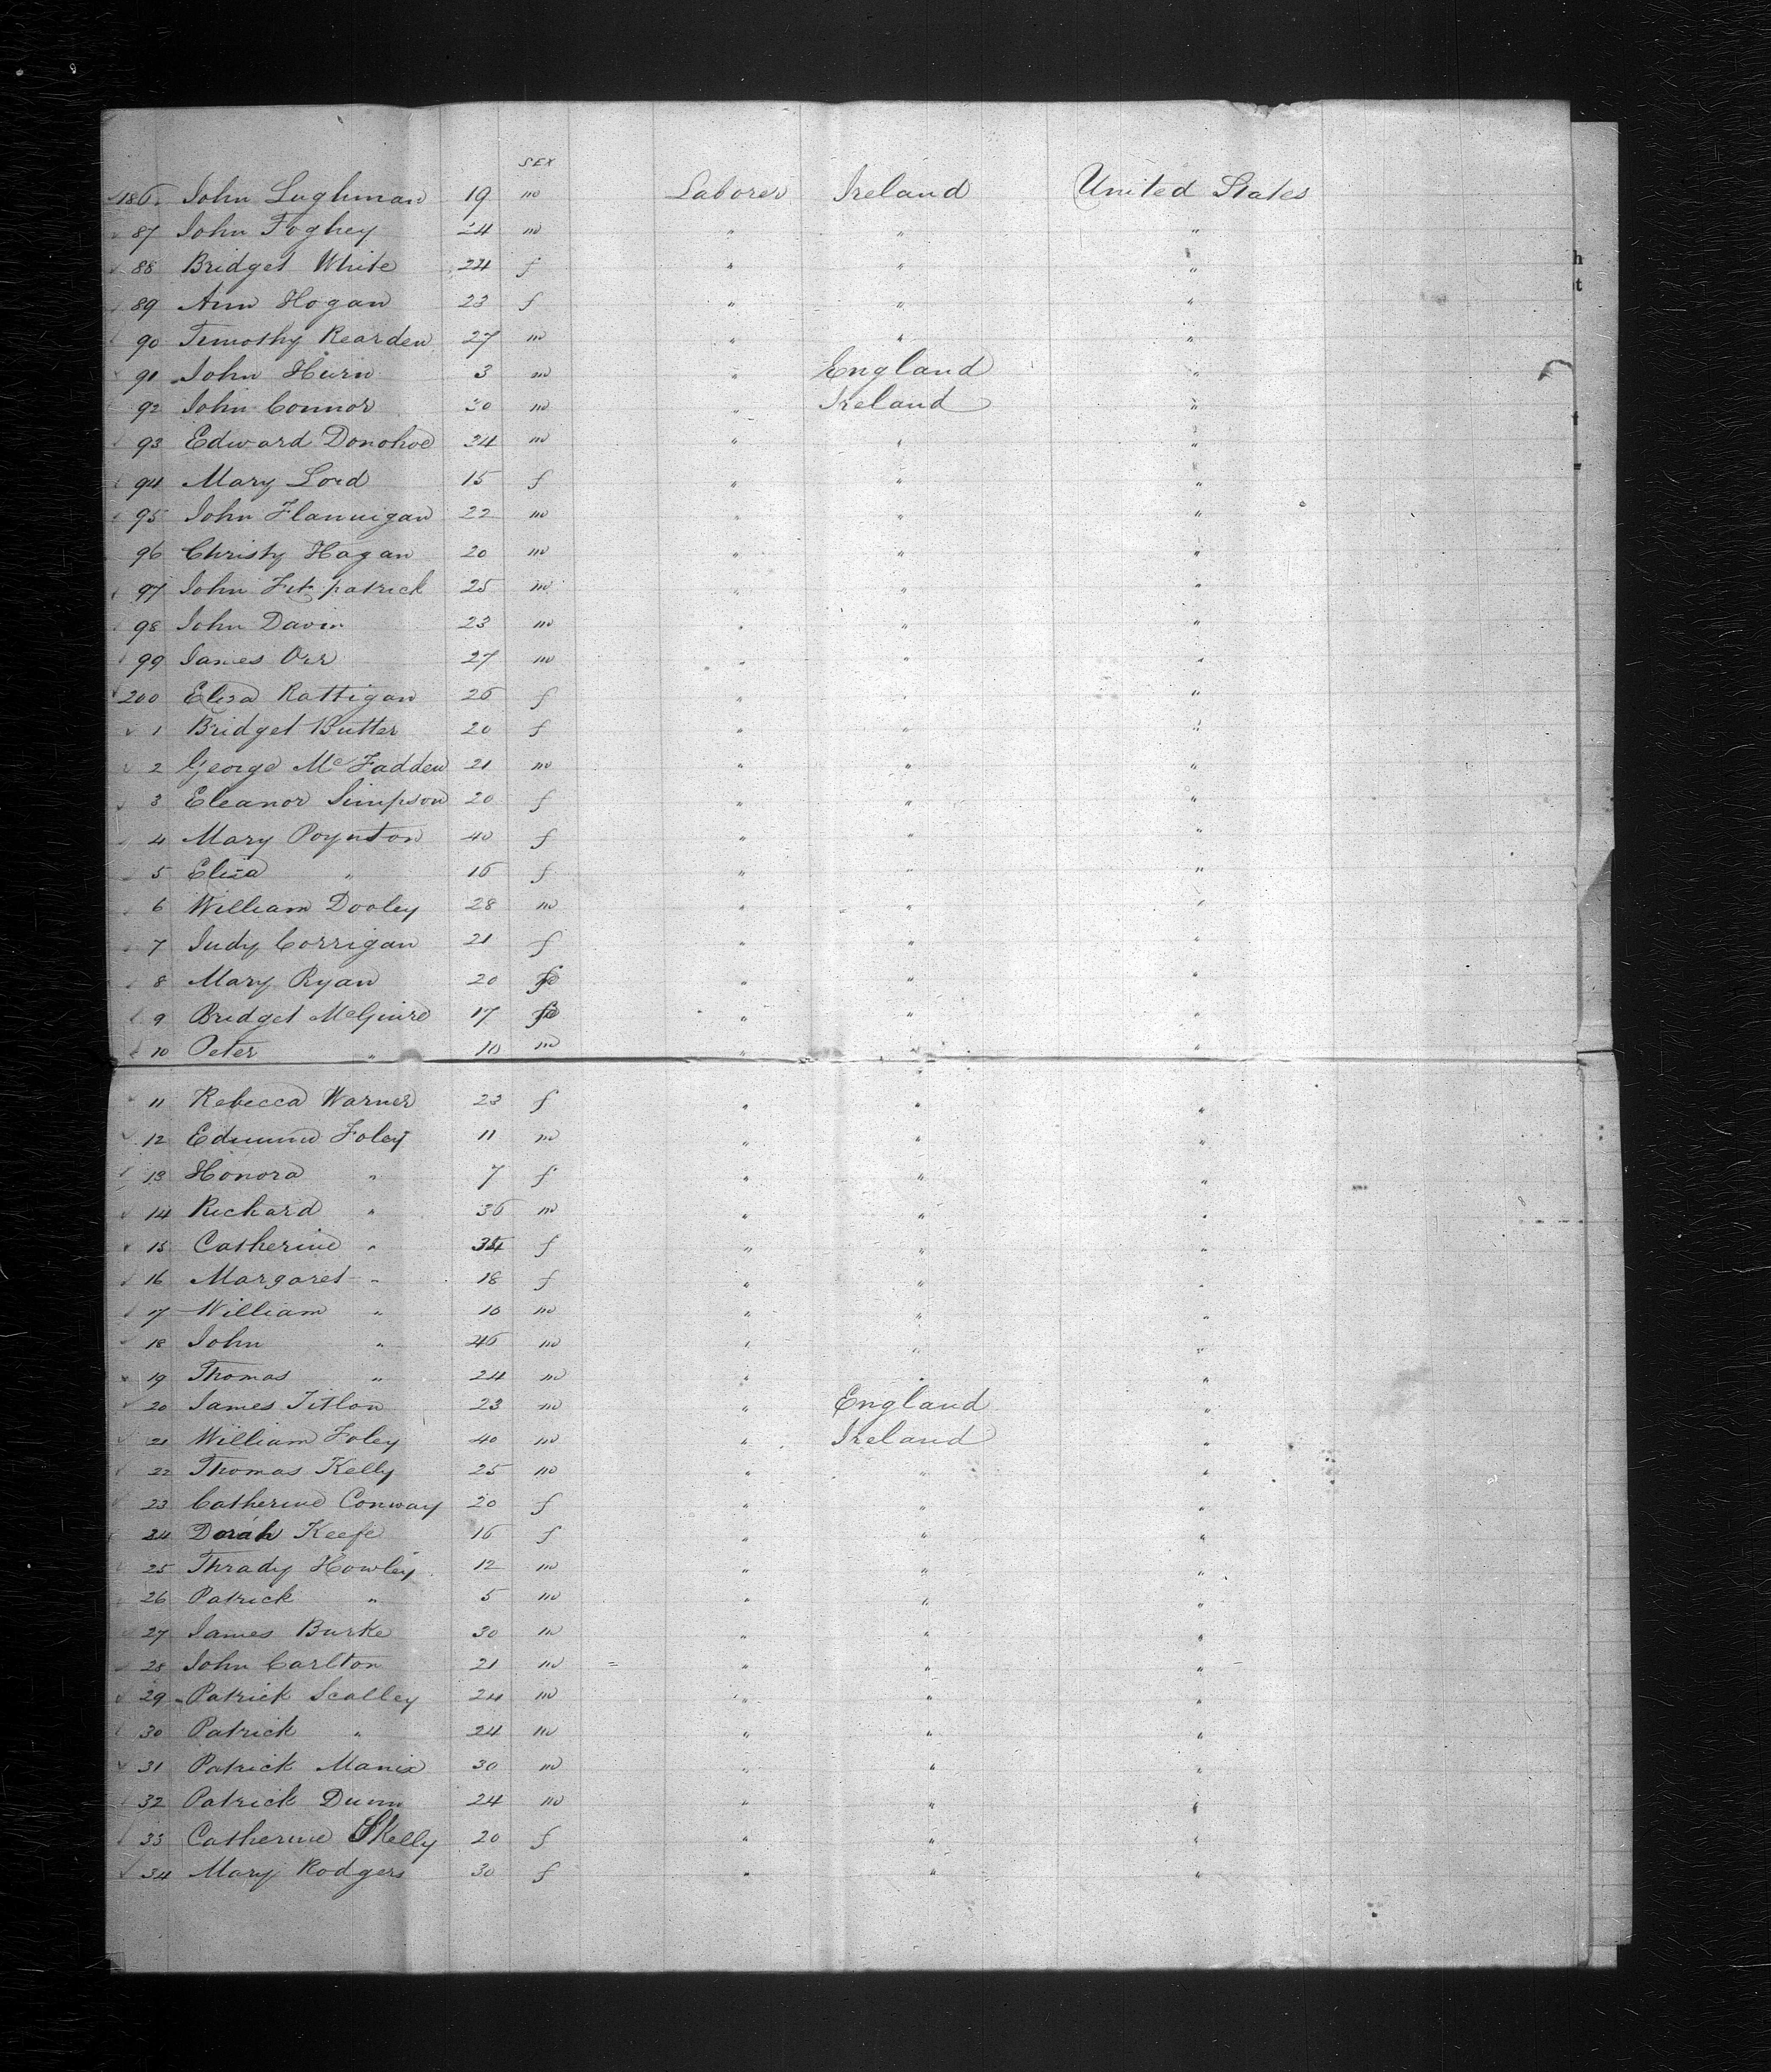 SEX
186. John Lughman 19 m Laborer Ireland United States
87 John Foghey 24 m " " "
88 Bridget White 24 f " " "
89 Ann Hogan 23 f " " "
90 Timothy Rearden 27 m " " "
91 John Hurn 3 m " England "
92 John Connor 30 m " Ireland "
93 Edward Donohoe 34 m " " "
94 Mary Lord 15 f " " "
95 John Flannigan 22 m " " "
96 Christy Hagan 20 m " " "
97 John Fitzpatrick 25 m " " "
98 John Davin 23 m " " "
99 James Orr 27 m " " "
200 Eliza Rattigan 26 f " " "
1 Bridget Butter 20 f " " "
2 George McFadden 21 m " " "
3 Eleanor Simpson 20 f " " "
4 Mary Poynton 40 f " " "
5 Eliza " 16 f " " "
6 William Dooley 28 m " " "
7 Judy Corrigan 21 f " " "
8 Mary Ryan 20 f " " "
9 Bridget McGuire 17 f " " "
10 Peter " 10 m " " "
11 Rebecca Warner 23 f " " "
12 Edmund Foley 11 m " " "
13 Honora " 7 f " " "
14 Richard " 36 m " " "
15 Catherine " 34 f " " "
16 Margaret " 18 f " " "
17 William " 10 m " " "
18 John " 46 m " " "
19 Thomas " 24 m " " "
20 James Titlon 23 m " England "
21 William Foley 40 m " Ireland "
22 Thomas Kelly 25 m " " "
23 Catherine Conway 20 f " " "
24 Dorah Keefe 16 f " " "
25 Thrady Howley 12 m " " "
26 Patrick " 5 m " " "
27 James Burke 30 m " " "
28 John Carlton 21 m " " "
29 Patrick Scalley 24 m " " "
30 Patrick " 24 m " " "
31 Patrick Manix 30 m " " "
32 Patrick Dunn 24 m " " "
33 Catherine Skelly 20 f " " "
34 Mary Rodgers 30 f " " "
h
t